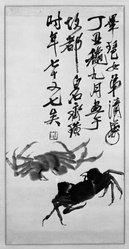 畢琵女弟清屬
丁丑秋九月畫于
故都白石齊璜
時年七十又七矣